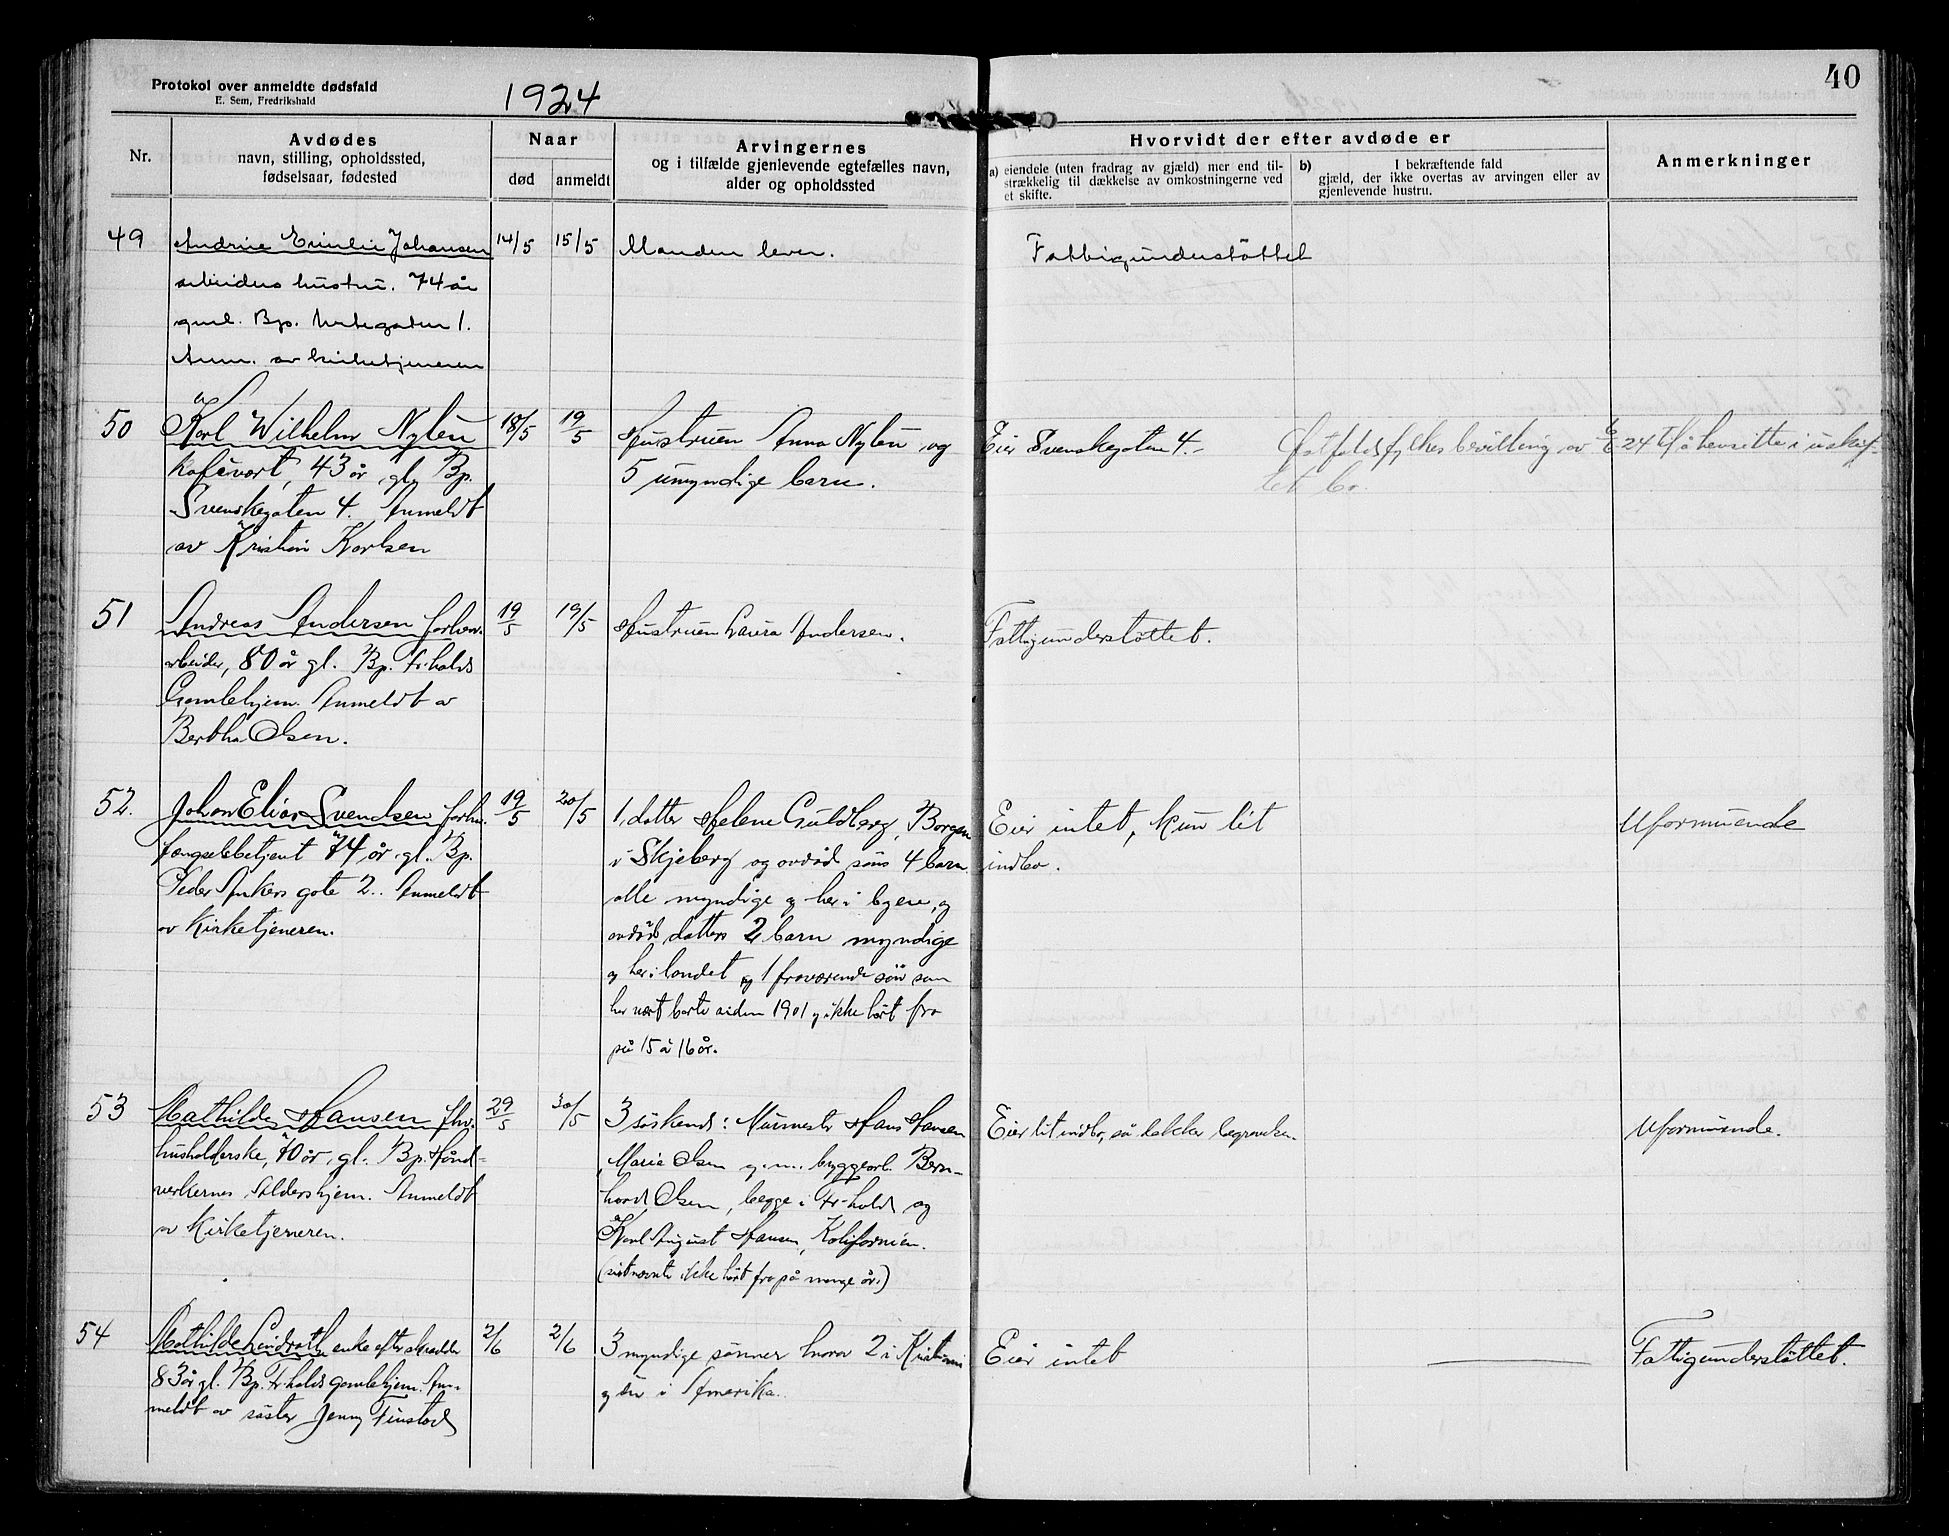 Protokol over anmeldte dødsfald
E. Sem, Fredrikshald
1924
40
Nr.
Avdødes
navn, stilling, opholdssted,
fødselsaar, fødested
Naar
død
anmeldt
Arvingernes
og i tilfælde gjenlevende egtefælles navn,
alder og opholdssted
Hvorvidt der efter avdøde er
a) eiendele (uten fradrag av gjæld) mer end til-
strækkelig til dækkelse av omkostningerne ved
et skifte.
b) I bekræftende fald
gjæld, der ikke overtas av arvingen eller av
gjenlevende hustru.
Anmerkninger
49
Andrine Emilie Johansen
arbeiders hustru. 74 år
gml. Bp.
Anm. av kirketjeneren
14/5
15/5
Manden lever.
Fattigunderstøttet
50
Karl Wilhelm Nylen
kafévært, 43 år gl. Bp.
Svenskegaten 4. Anmeldt
av Kristian Karlsen
18/5
19/5
Hustruen Anna Nylen og
5 umyndige barn.
Eier Svenskegaten 4.-
Østfold fylkes bevilling av 24 til å hensitte i uskif-
tet bo.
51
Andreas Andersen forhv.
arbeider, 80 år gl. Bp. Fr.halds
Gamlehjem. Anmeldt av
Bertha Olsen.
19/5
19/5
Hustruen Laura Andersen.
Fattigunderstøttet.
52.
Johan Elias Svendsen forhv.
fængselsbetjent 74 år gl. Bp.
Peder Ankers gate 2.. Anmeldt
av kirketjeneren.
19/5
20/5
1 datter Helene Guldberg, Borgen
i Skjeberg og avdød søns 4 barn
alle myndige og her i byen, og
avdød datters 2 barn myndige
og her i landet og 1 fraværende søn som
har vært borte siden 1901 og ikke hørt fra
på 15 à 16 år.
Eier intet, kun lit
indbo.
Uformuende
53
Mathilde Hansen fhv.
husholderske, 70 år gl. Bp. Hånd-
verkernes Aldershjem. Anmeldt
av kirketjeneren.
29/5
30/5
3 søskend: Murmester Hans Hansen
Marie Olsen g.m. byggearb. Bern-
hard Olsen, begge i Fr-hald og
Karl August Hansen, Kalifornien.
(sistnevnte ikke hørt fra på mange år.)
Eier lit indbo, så dekker begravelsen.
Uformuende.
54
Mathilde Lindroth, enke efter skrædder
83 år gl. Bp. Fr.halds gamlehjem. An-
meldt av søster Jenny Finstad
2/6
2/6
3 myndige sønner hvorav 2 i Kristiania
og en i Amerika.
Eier intet
Fattigunderstøttet.